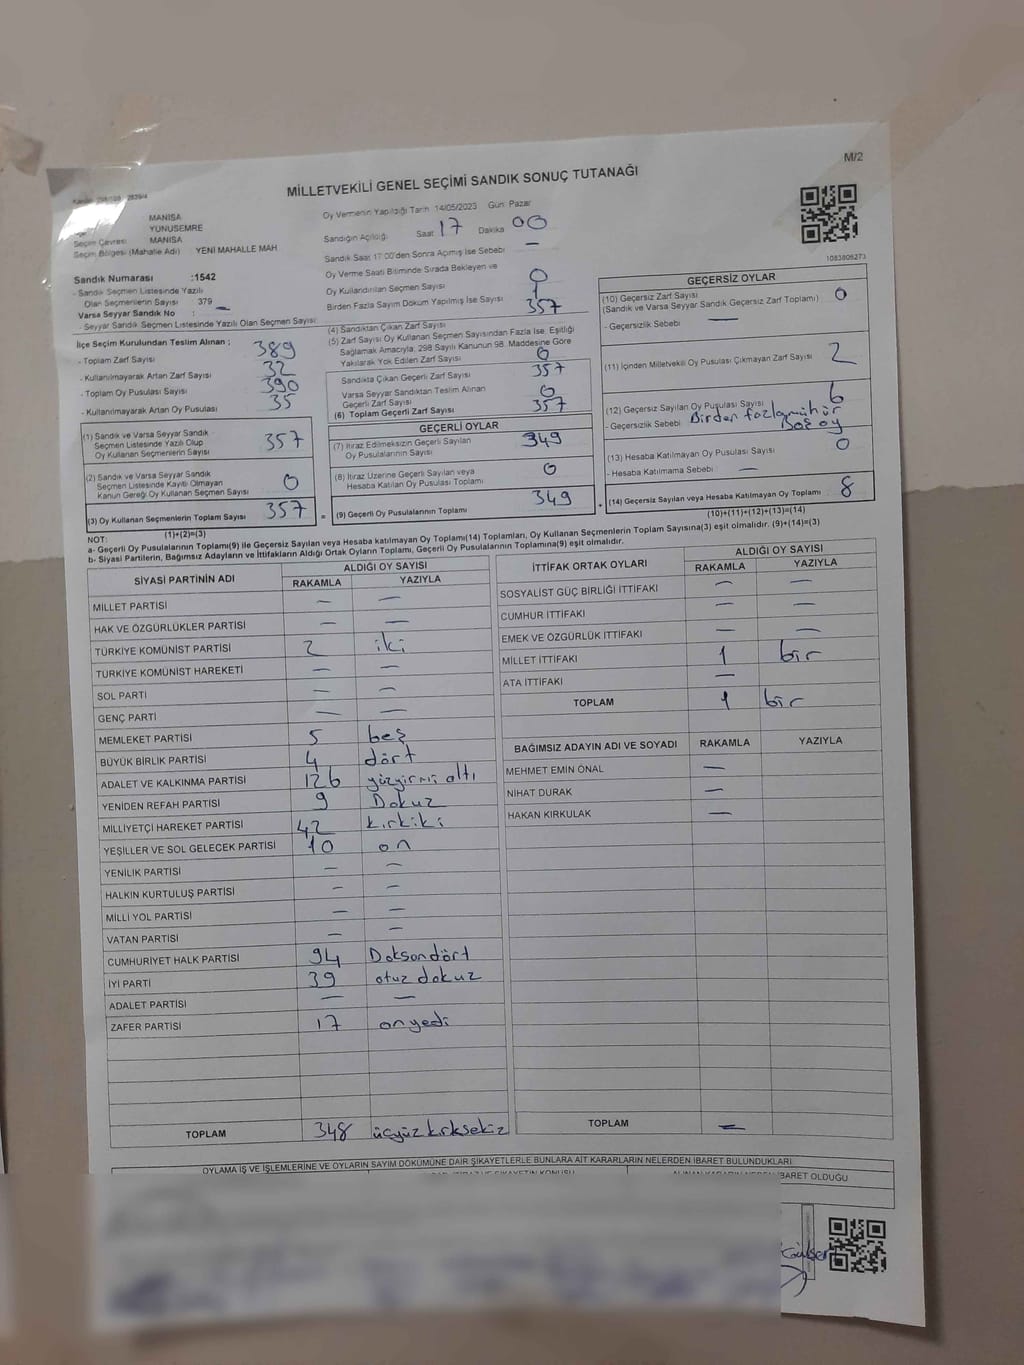 M/2
MİLLETVEKİLİ GENEL SEÇİMİ SANDIK SONUÇ TUTANAĞI
MANİSA
YUNUSEMRE
Seçim Çevresi MANİSA
Seçim Bölgesi (Mahalle Adı) YENİ MAHALLE MAH
Sandık Numarası :1542
- Sandık Seçmen Listesinde Yazılı
Olan Seçmenlerin Sayısı 379
Varsa Seyyar Sandık No : —
- Seyyar Sandık Seçmen Listesinde Yazılı Olan Seçmen Sayısı:
İlçe Seçim Kurulundan Teslim Alınan ;
- Toplam Zarf Sayısı 389
- Kullanılmayarak Artan Zarf Sayısı 32
- Toplam Oy Pusulası Sayısı 390
- Kullanılmayarak Artan Oy Pusulası 35
(1) Sandık ve Varsa Seyyar Sandık
Seçmen Listesinde Yazılı Olup
Oy Kullanan Seçmenlerin Sayısı 357
(2) Sandık ve Varsa Seyyar Sandık
Seçmen Listesinde Kayıtlı Olmayan
Kanun Gereği Oy Kullanan Seçmen Sayısı 0
(3) Oy Kullanan Seçmenlerin Toplam Sayısı 357
(1)+(2)=(3)
Oy Vermenin Yapıldığı Tarih 14/05/2023 Gün: Pazar
Sandığın Açıldığı: Saat 17 Dakika 00
Sandık Saat 17:00'den Sonra Açılmış İse Sebebi: —
Oy Verme Saati Bitiminde Sırada Bekleyen ve
Oy Kullandırılan Seçmen Sayısı 0
Birden Fazla Sayım Döküm Yapılmış İse Sayısı 1
(4) Sandıktan Çıkan Zarf Sayısı 357
(5) Zarf Sayısı Oy Kullanan Seçmen Sayısından Fazla İse, Eşitliği
Sağlamak Amacıyla, 298 Sayılı Kanunun 98. Maddesine Göre
Yakılarak Yok Edilen Zarf Sayısı 0
Sandıkta Çıkan Geçerli Zarf Sayısı 357
Varsa Seyyar Sandıktan Teslim Alınan
Geçerli Zarf Sayısı 0
(6) Toplam Geçerli Zarf Sayısı 357
GEÇERLİ OYLAR
(7) İtiraz Edilmeksizin Geçerli Sayılan
Oy Pusulalarının Sayısı 349
(8) İtiraz Üzerine Geçerli Sayılan veya
Hesaba Katılan Oy Pusulası Toplamı 0
= (9) Geçerli Oy Pusulalarının Toplamı 349
1083806273
GEÇERSİZ OYLAR
(10) Geçersiz Zarf Sayısı
(Sandık ve Varsa Seyyar Sandık Geçersiz Zarf Toplamı) 0
- Geçersizlik Sebebi —
(11) İçinden Milletvekili Oy Pusulası Çıkmayan Zarf Sayısı 2
(12) Geçersiz Sayılan Oy Pusulası Sayısı 6
- Geçersizlik Sebebi Birden fazla mühür
Boş oy
(13) Hesaba Katılmayan Oy Pusulası Sayısı 0
- Hesaba Katılmama Sebebi —
+ (14) Geçersiz Sayılan veya Hesaba Katılmayan Oy Toplamı 8
(10)+(11)+(12)+(13)=(14)
NOT:
a- Geçerli Oy Pusulalarının Toplamı(9) ile Geçersiz Sayılan veya Hesaba Katılmayan Oy Toplamı(14) Toplamları, Oy Kullanan Seçmenlerin Toplam Sayısına(3) eşit olmalıdır. (9)+(14)=(3)
b- Siyasi Partilerin, Bağımsız Adayların ve İttifakların Aldığı Ortak Oyların Toplamı, Geçerli Oy Pusulalarının Toplamına(9) eşit olmalıdır.
SİYASİ PARTİNİN ADI ALDIĞI OY SAYISI
RAKAMLA YAZIYLA
MİLLET PARTİSİ — —
HAK VE ÖZGÜRLÜKLER PARTİSİ — —
TÜRKİYE KOMÜNİST PARTİSİ 2 iki
TÜRKİYE KOMÜNİST HAREKETİ — —
SOL PARTİ — —
GENÇ PARTİ — —
MEMLEKET PARTİSİ 5 beş
BÜYÜK BİRLİK PARTİSİ 4 dört
ADALET VE KALKINMA PARTİSİ 126 yüzyirmi altı
YENİDEN REFAH PARTİSİ 9 Dokuz
MİLLİYETÇİ HAREKET PARTİSİ 42 kırkiki
YEŞİLLER VE SOL GELECEK PARTİSİ 10 on
YENİLİK PARTİSİ — —
HALKIN KURTULUŞ PARTİSİ — —
MİLLİ YOL PARTİSİ — —
VATAN PARTİSİ — —
CUMHURİYET HALK PARTİSİ 94 Doksandört
İYİ PARTİ 39 otuz dokuz
ADALET PARTİSİ — —
ZAFER PARTİSİ 17 onyedi
TOPLAM 348 üçyüzkırksekiz
İTTİFAK ORTAK OYLARI ALDIĞI OY SAYISI
RAKAMLA YAZIYLA
SOSYALİST GÜÇ BİRLİĞİ İTTİFAKI — —
CUMHUR İTTİFAKI — —
EMEK VE ÖZGÜRLÜK İTTİFAKI — —
MİLLET İTTİFAKI 1 bir
ATA İTTİFAKI —
TOPLAM 1 bir
BAĞIMSIZ ADAYIN ADI VE SOYADI RAKAMLA YAZIYLA
MEHMET EMİN ÖNAL —
NİHAT DURAK —
HAKAN KIRKULAK —
TOPLAM —
OYLAMA İŞ VE İŞLEMLERİNE VE OYLARIN SAYIM DÖKÜMÜNE DAİR ŞİKAYETLERLE BUNLARA AİT KARARLARIN NELERDEN İBARET BULUNDUKLARI
İBARET OLDUĞU